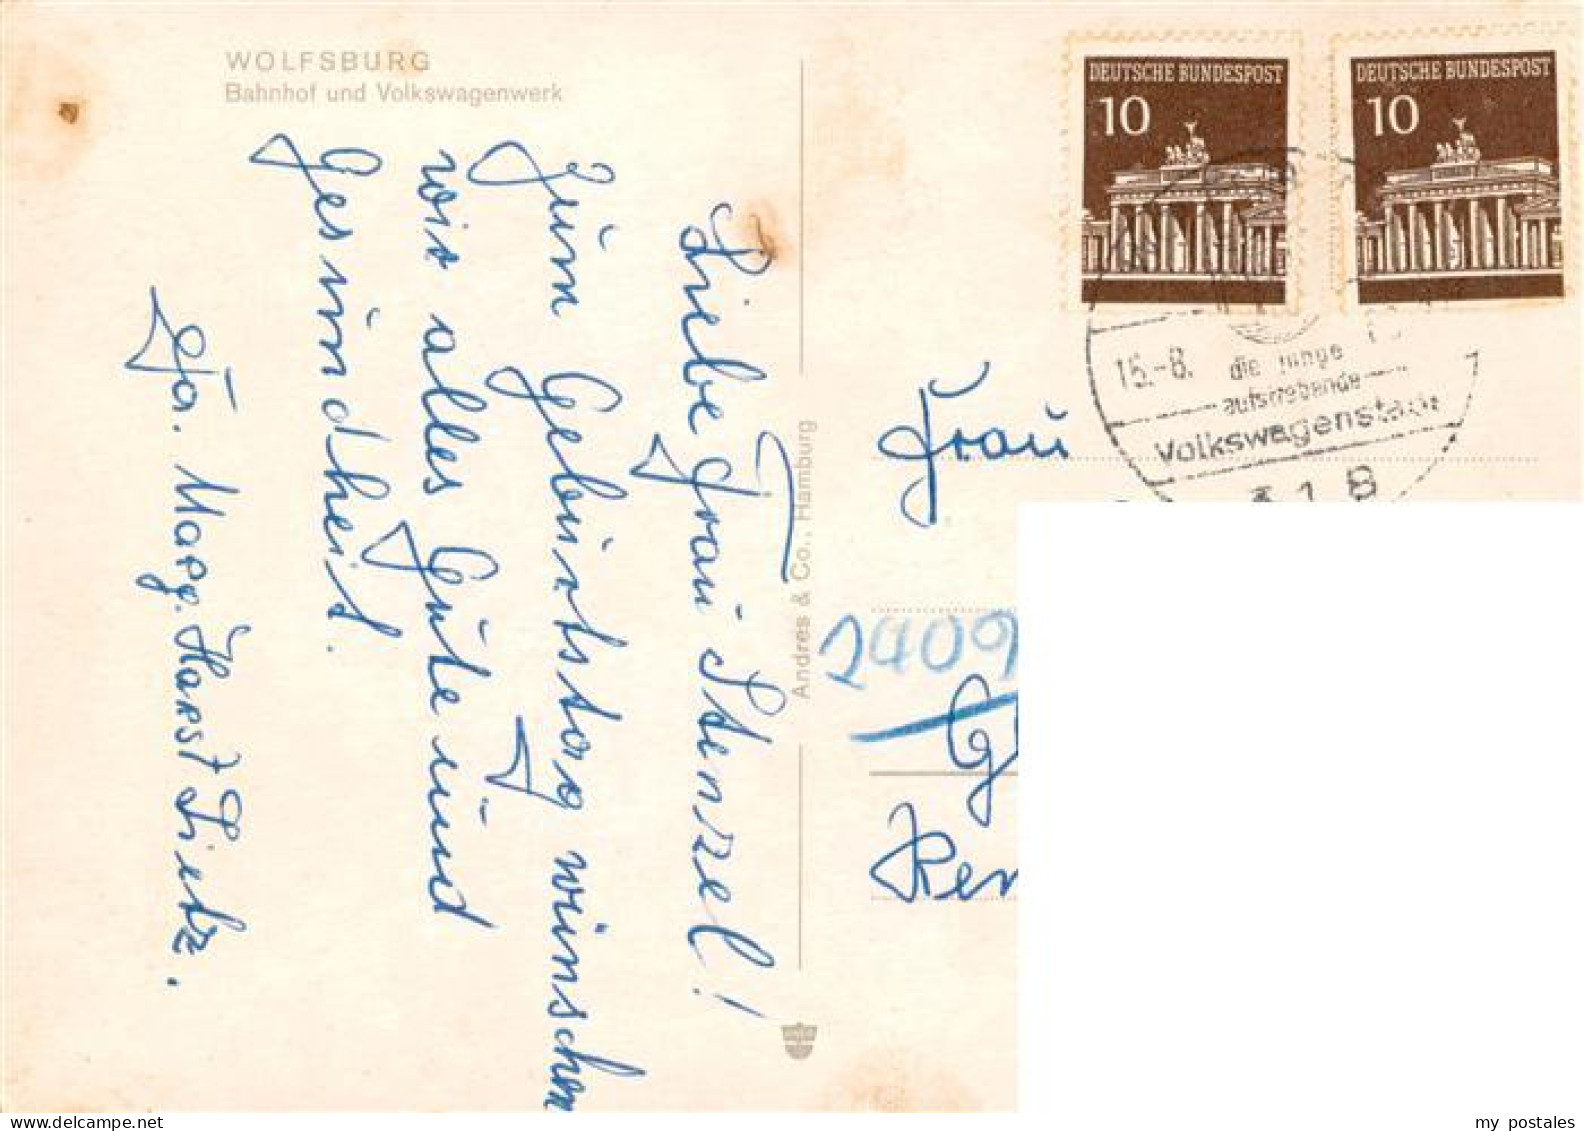 WOLFSBURG
Bahnhof und Volkswagenwerk
Liebe Frau Stenzel!
Zum Geburtstag wünschen
wir alles Gute und
Gesundheit.
Fa. Marg. Harst Lietz.
Andres & Co., Hamburg
DEUTSCHE BUNDESPOST
10
DEUTSCHE BUNDESPOST
10
15.-8.
die junge
aufstrebende
Volkswagenstadt
318
Frau
2409